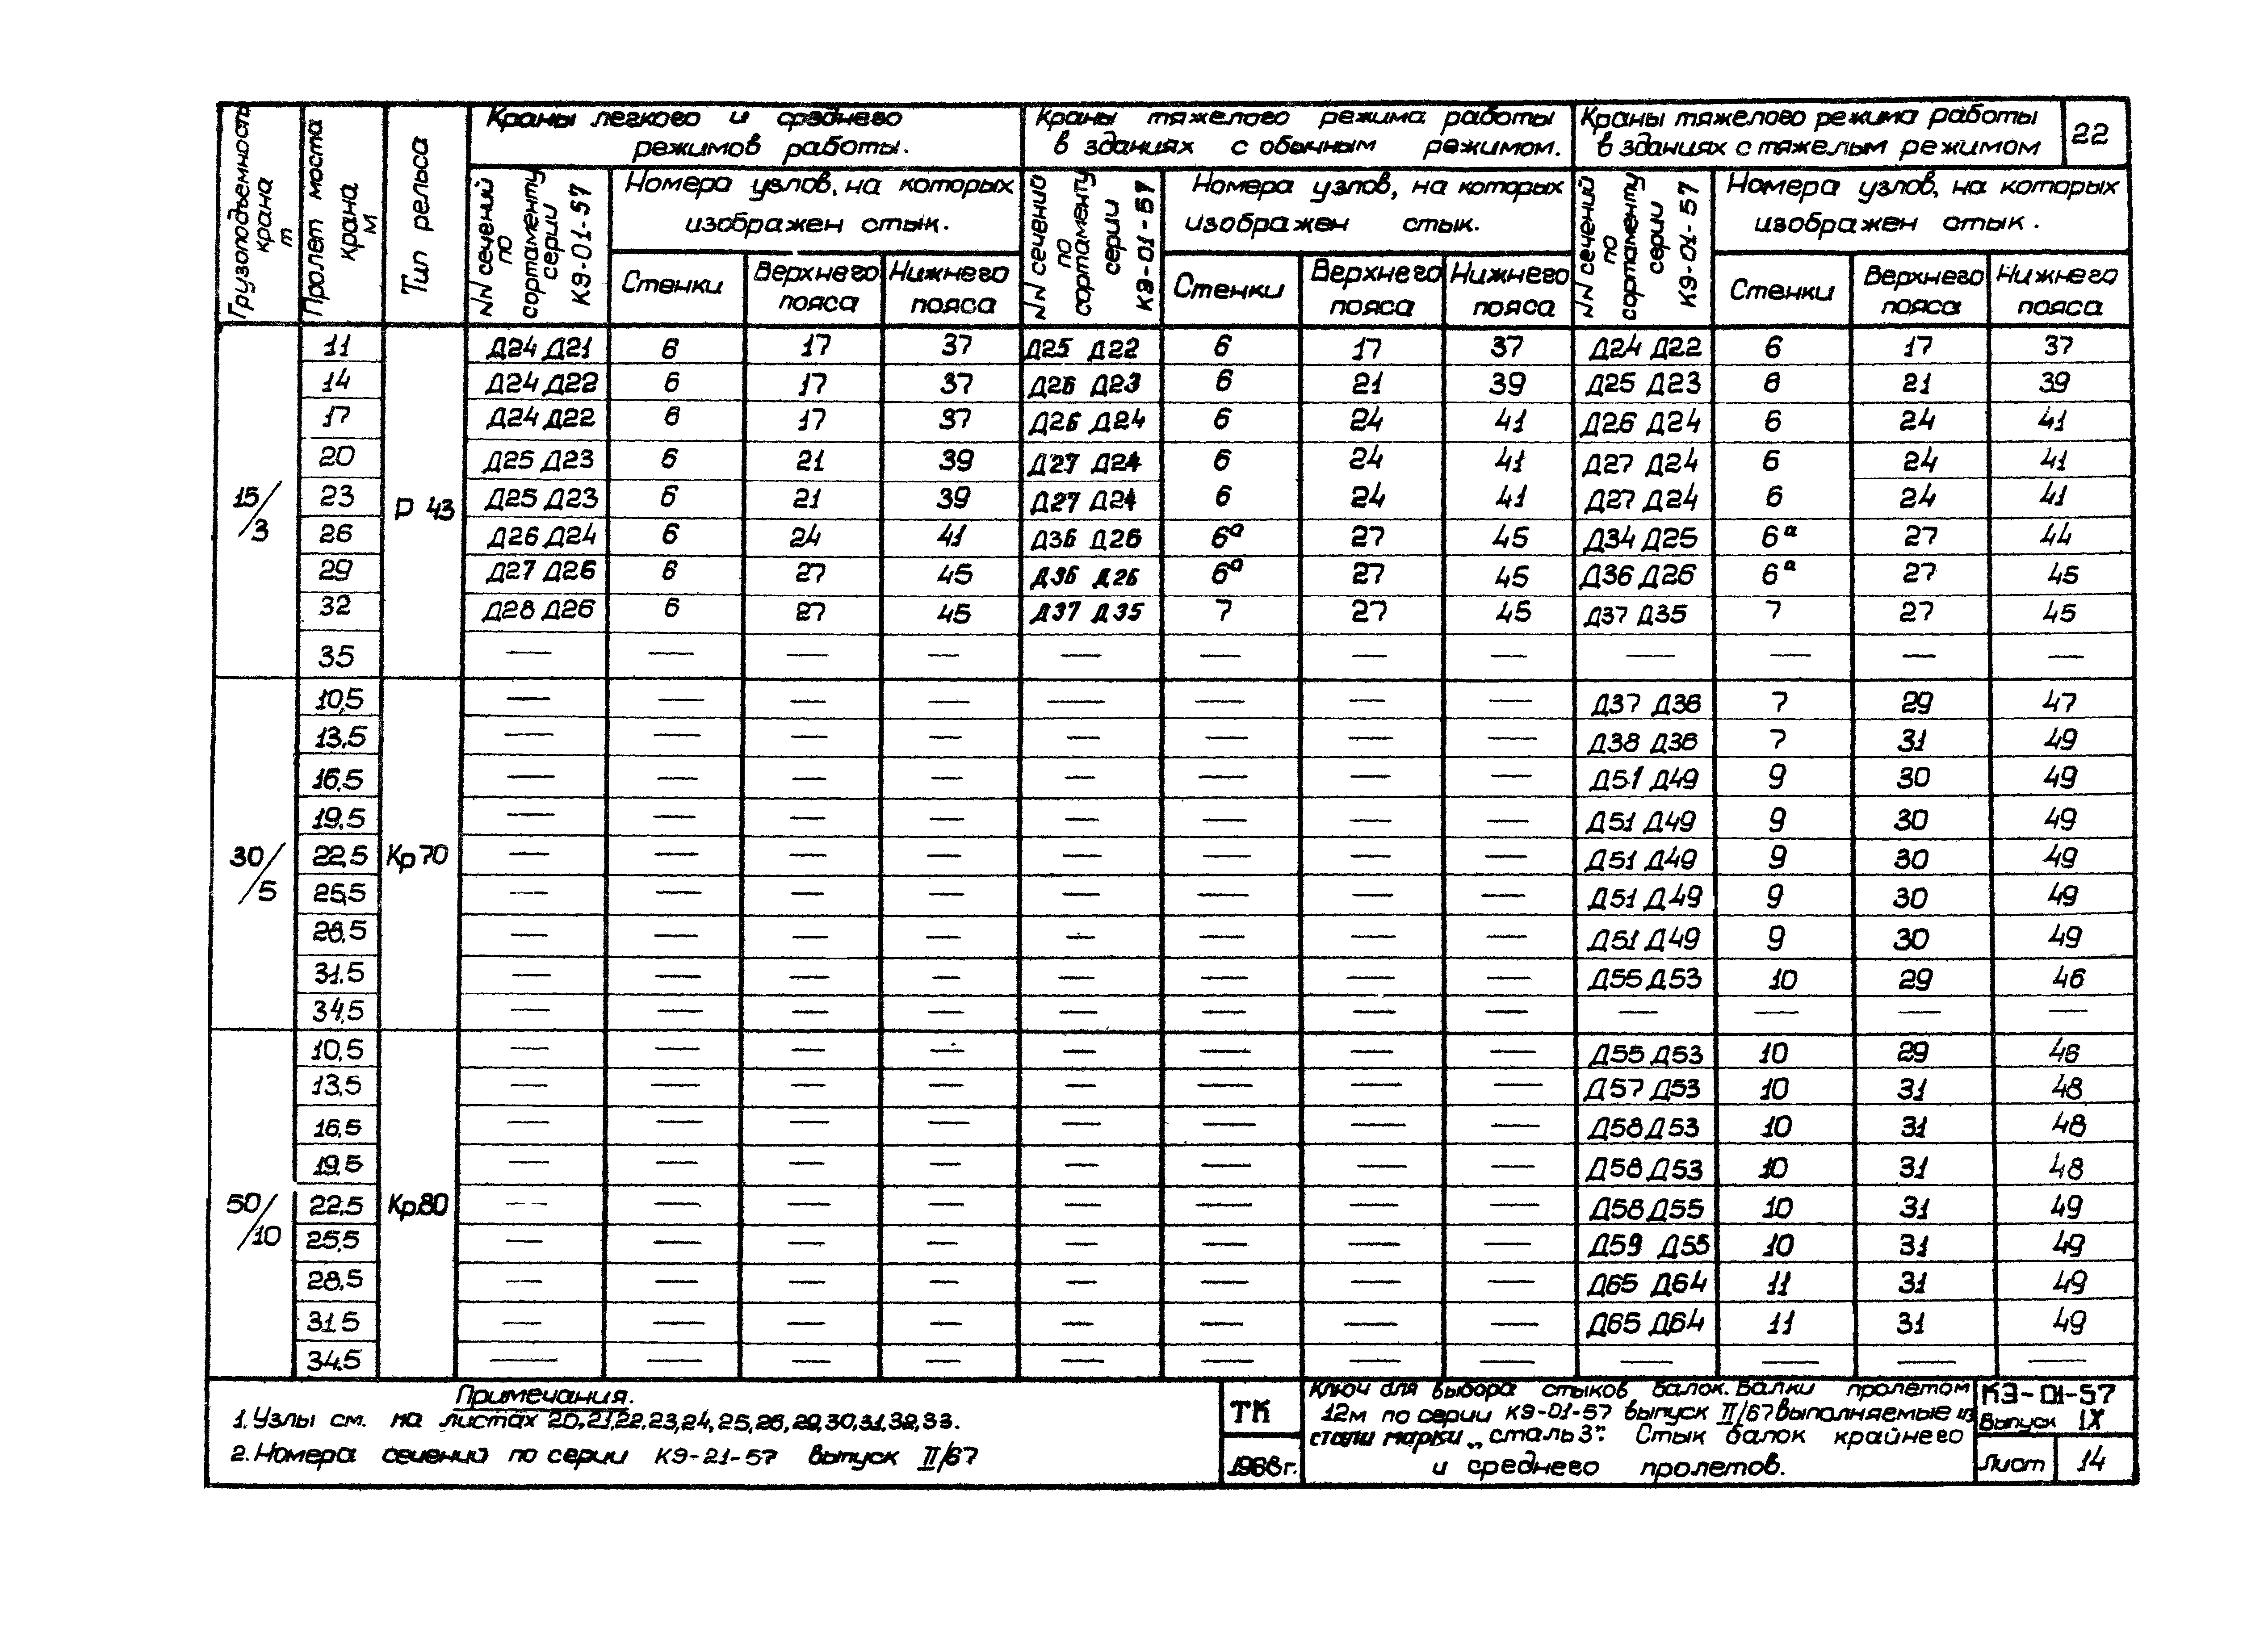 Грузоподъемность крана т
Пролет моста крана м
Тип рельса
Краны легкого и среднего режимов работы.
Краны тяжелого режима работы в зданиях с обычным режимом.
Краны тяжелого режима работы в зданиях с тяжелым режимом
22
№№ сечений по сортаменту серии КЭ-01-57
Номера узлов, на которых изображен стык.
№№ сечений по сортаменту серии КЭ-01-57
Номера узлов, на которых изображен стык.
№№ сечений по сортаменту серии КЭ-01-57
Номера узлов, на которых изображен стык.
Стенки Верхнего пояса Нижнего пояса Стенки Верхнего пояса Нижнего пояса Стенки Верхнего пояса Нижнего пояса
15/3 Р 43
11 Д24 Д21 6 17 37 Д25 Д22 6 17 37 Д24 Д22 6 17 37
14 Д24 Д22 6 17 37 Д26 Д23 6 21 39 Д25 Д23 6 21 39
17 Д24 Д22 6 17 37 Д26 Д24 6 24 41 Д26 Д24 6 24 41
20 Д25 Д23 6 21 39 Д27 Д24 6 24 41 Д27 Д24 6 24 41
23 Д25 Д23 6 21 39 Д27 Д24 6 24 41 Д27 Д24 6 24 41
26 Д26 Д24 6 24 41 Д36 Д26 6а 27 45 Д34 Д25 6а 27 44
29 Д27 Д26 6 27 45 Д36 Д26 6а 27 45 Д36 Д26 6а 27 45
32 Д28 Д26 6 27 45 Д37 Д35 7 27 45 Д37 Д35 7 27 45
35 — — — — — — — — — — — —
30/5 Кр70
10,5 — — — — — — — — Д37 Д36 7 29 47
13,5 — — — — — — — — Д38 Д36 7 31 49
16,5 — — — — — — — — Д51 Д49 9 30 49
19,5 — — — — — — — — Д51 Д49 9 30 49
22,5 — — — — — — — — Д51 Д49 9 30 49
25,5 — — — — — — — — Д51 Д49 9 30 49
28,5 — — — — — — — — Д51 Д49 9 30 49
31,5 — — — — — — — — Д55 Д53 10 29 46
34,5 — — — — — — — — — — — —
50/10 Кр.80
10,5 — — — — — — — — Д55 Д53 10 29 46
13,5 — — — — — — — — Д57 Д53 10 31 48
16,5 — — — — — — — — Д58 Д53 10 31 48
19,5 — — — — — — — — Д58 Д53 10 31 48
22,5 — — — — — — — — Д58 Д55 10 31 49
25,5 — — — — — — — — Д59 Д55 10 31 49
28,5 — — — — — — — — Д65 Д64 11 31 49
31,5 — — — — — — — — Д65 Д64 11 31 49
34,5 — — — — — — — — — — — —
Примечания.
1. Узлы см. на листах 20,21,22,23,24,25,26,29,30,31,32,33.
2. Номера сечений по серии КЭ-21-57 выпуск II/67
ТК
1968г.
Ключ для выбора стыков балок. Балки пролетом
12м по серии КЭ-01-57 выпуск II/67 выполняемые из
стали марки „сталь3". Стык балок крайнего
и среднего пролетов.
КЭ-01-57
Выпуск IX
Лист 14